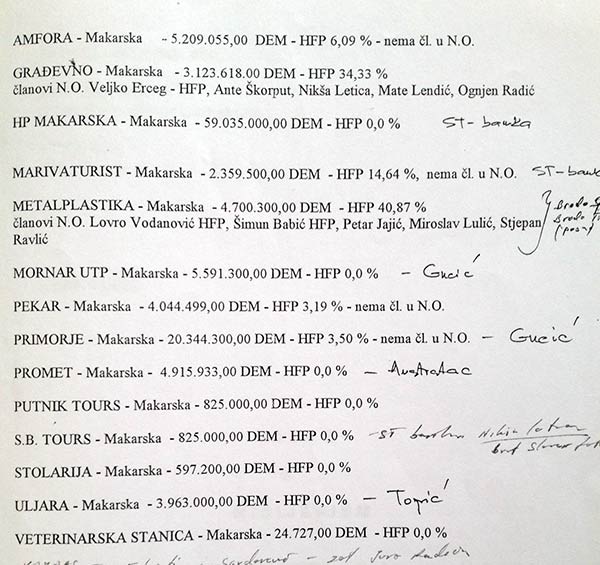 AMFORA - Makarska - 5.209.055,00 DEM - HFP 6,09 % - nema čl. u N.O.
GRAĐEVNO - Makarska - 3.123.618.00 DEM - HFP 34,33 %
članovi N.O. Veljko Erceg - HFP, Ante Škorput, Nikša Letica, Mate Lendić, Ognjen Radić
HP MAKARSKA - Makarska - 59.035.000,00 DEM - HFP 0,0 % ST-banka
MARIVATURIST - Makarska - 2.359.500,00 DEM - HFP 14,64 %, nema čl. u N.O. ST-bank
METALPLASTIKA - Makarska - 4.700.300,00 DEM - HFP 40,87 %
članovi N.O. Lovro Vodanović HFP, Šimun Babić HFP, Petar Jajić, Miroslav Lulić, Stjepan
Ravlić
MORNAR UTP - Makarska - 5.591.300,00 DEM - HFP 0,0 % - Gucić
PEKAR - Makarska - 4.044.499,00 DEM - HFP 3,19 % - nema čl. u N.O.
PRIMORJE - Makarska - 20.344.300,00 DEM - HFP 3,50 % - nema čl. u N.O. - Gucić
PROMET - Makarska - 4.915.933,00 DEM - HFP 0,0 % - Australac
PUTNIK TOURS - Makarska - 825.000,00 DEM - HFP 0,0 %
S.B. TOURS - Makarska - 825.000,00 DEM - HFP 0,0 % - ST
STOLARIJA - Makarska - 597.200,00 DEM - HFP 0,0 %
ULJARA - Makarska - 3.963.000,00 DEM - HFP 0,0 % - Topić
VETERINARSKA STANICA - Makarska - 24.727,00 DEM - HFP 0,0 %